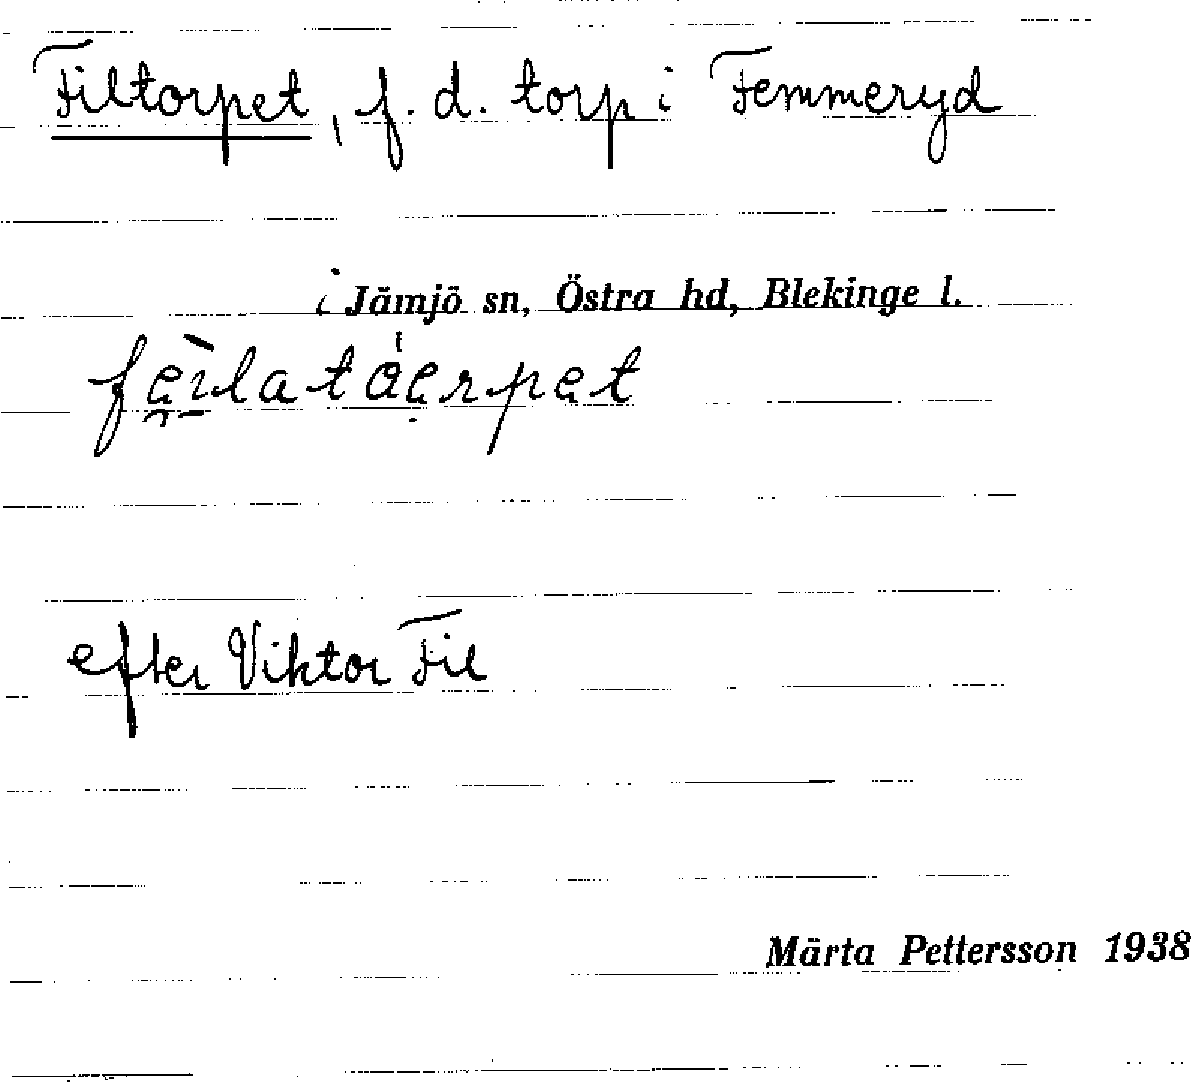 Filtorpet, f. d. torp i Femmeryd
i Jämjö sn, Östra hd, Blekinge l.
efter Viktor Fil
Märta Pettersson 1938